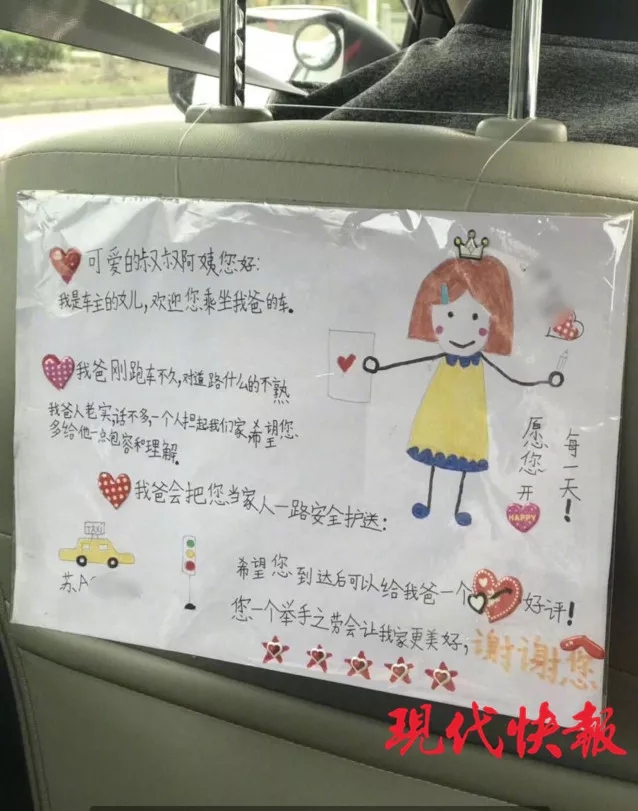 可爱的叔叔阿姨您好:
我是车主的女儿,欢迎您乘坐我爸的车。
我爸刚跑车不久,对道路什么的不熟
我爸人老实,话不多,一个人担起我们家希望您
多给他一点包容和理解。
我爸会把您当家人一路安全护送:
愿您开
HAPPY
每一天!
TAXI
苏A
希望您到达后可以给我爸一个
好评!
您一个举手之劳会让我家更美好,谢谢您
现代快報